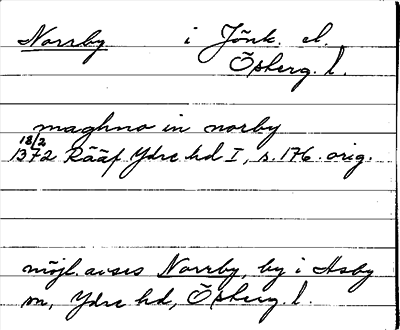 Norrby i Jönk. el.
Östberg. l.
maghno in norby
18/2
1372 Rääf Ydre hd I, s. 176. orig.
möjl. avses Norrby, by i Asby
sn, Ydre hd, Östberg. l.